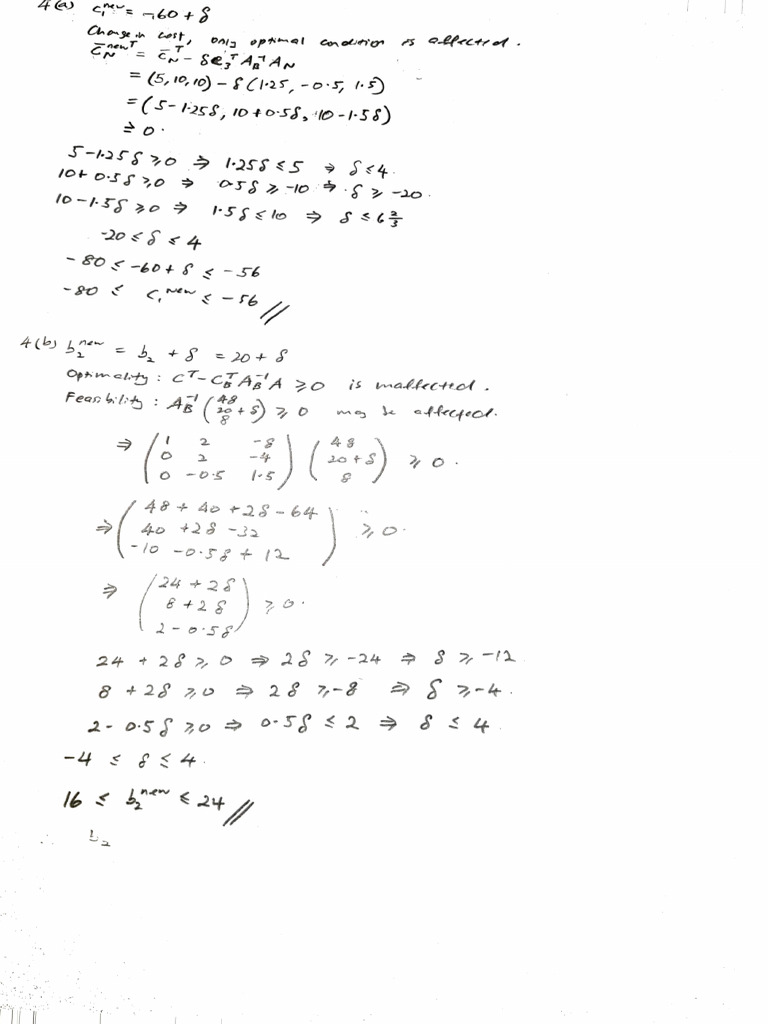 4(a) c₁ⁿᵉʷ = -60 + δ
Change in cost, only optimal condition is affected.
c̄_Nⁿᵉʷᵀ = c̄_Nᵀ - δe₃ᵀ A_B⁻¹ A_N
= (5, 10, 10) - δ(1.25, -0.5, 1.5)
= (5-1.25δ, 10+0.5δ, 10-1.5δ)
≥ 0.
5-1.25δ ≥ 0 ⇒ 1.25δ ≤ 5 ⇒ δ ≤ 4.
10+0.5δ ≥ 0 ⇒ 0.5δ ≥ -10 ⇒ δ ≥ -20.
10-1.5δ ≥ 0 ⇒ 1.5δ ≤ 10 ⇒ δ ≤ 6⅔
-20 ≤ δ ≤ 4
-80 ≤ -60+δ ≤ -56
-80 ≤ c₁ⁿᵉʷ ≤ -56 //
4(b) b₂ⁿᵉʷ = b₂ + δ = 20 + δ
Optimality: Cᵀ - C_Bᵀ A_B⁻¹ A ≥ 0 is unaffected.
Feasibility: A_B⁻¹ (48 20+δ 8) ≥ 0 may be affected.
⇒ (1 2 -8 (48
0 2 -4 20+δ ≥ 0.
0 -0.5 1.5) 8)
(48 + 40 + 2δ - 64
⇒ 40 + 2δ - 32 ≥ 0.
-10 - 0.5δ + 12)
⇒ (24 + 2δ
8 + 2δ ≥ 0.
2 - 0.5δ)
24 + 2δ ≥ 0 ⇒ 2δ ≥ -24 ⇒ δ ≥ -12
8 + 2δ ≥ 0 ⇒ 2δ ≥ -8 ⇒ δ ≥ -4.
2 - 0.5δ ≥ 0 ⇒ 0.5δ ≤ 2 ⇒ δ ≤ 4
-4 ≤ δ ≤ 4.
16 ≤ b₂ⁿᵉʷ ≤ 24 //
b₂